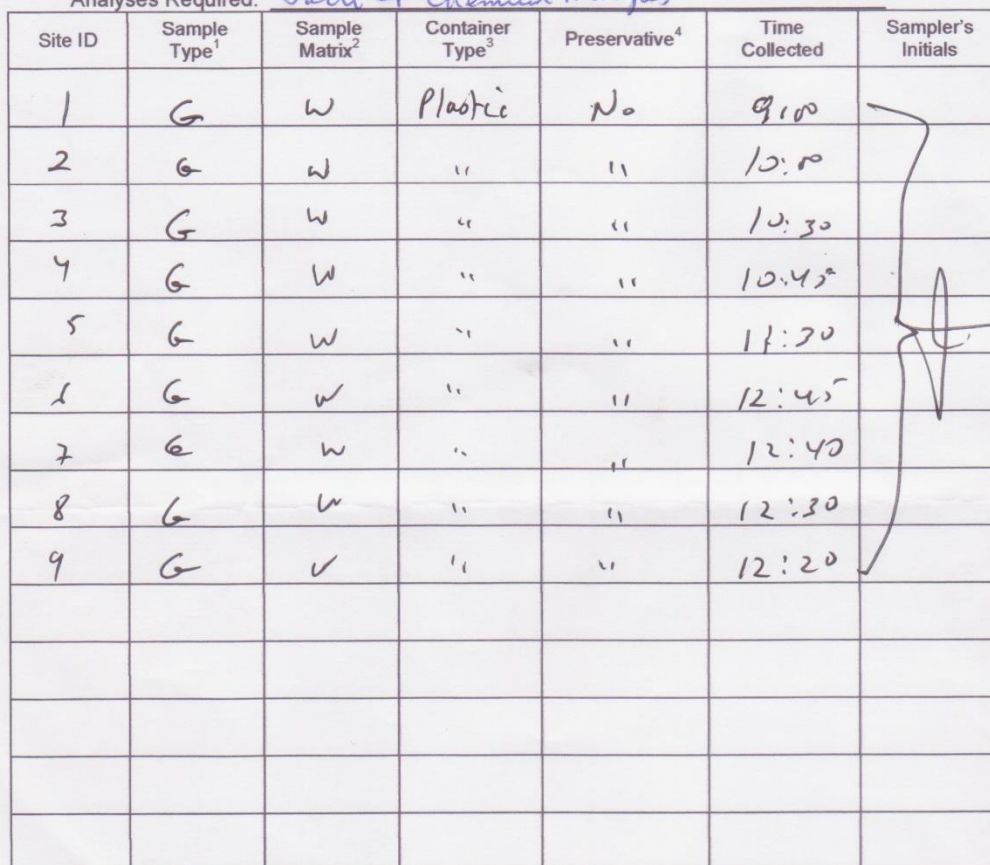 Analyses Required: Chemical Analyses
Site ID Sample Type1 Sample Matrix2 Container Type3 Preservative4 Time Collected Sampler's Initials
1 G W Plastic No 9:00
2 G W " " 10:00
3 G W " " 10:30
4 G W " " 10:45
5 G W " " 11:30
6 G W " " 12:45
7 G W " " 12:40
8 G W " " 12:30
9 G W " " 12:20